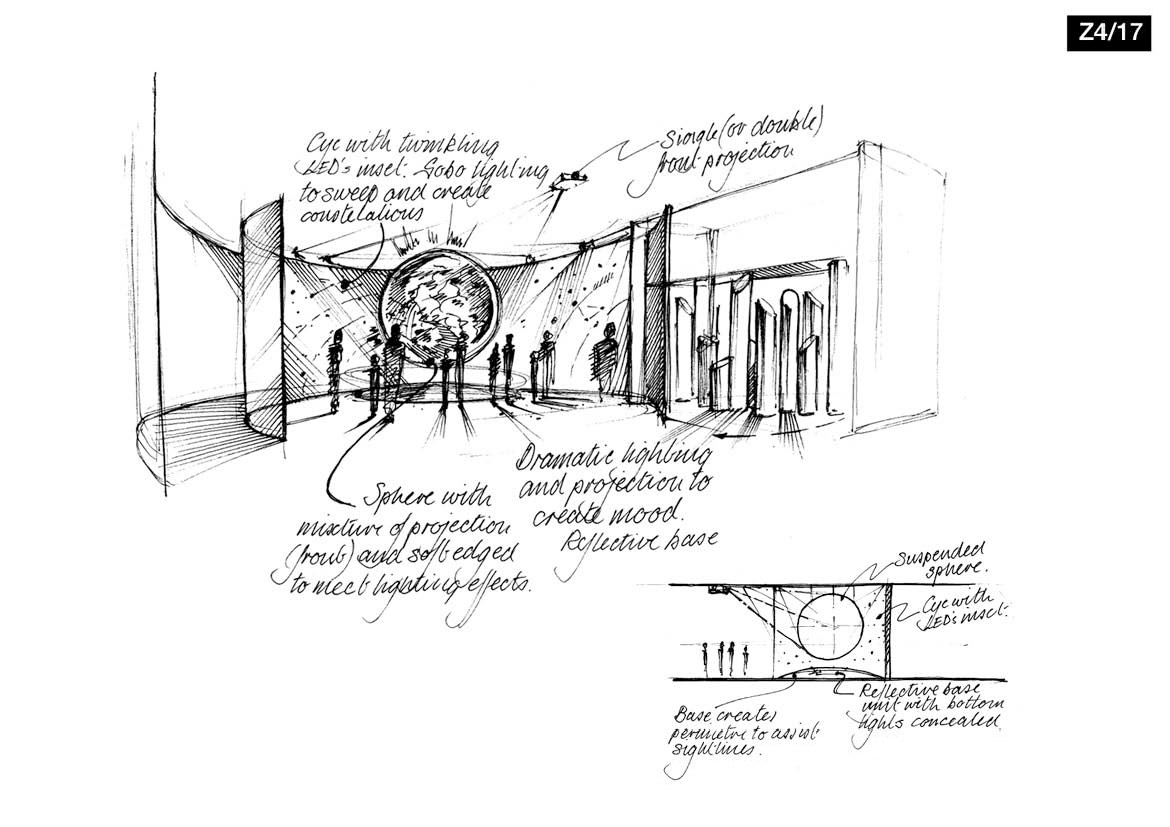 Z4/17
Cyc with twinkling
LED's inset. Gobo lighting
to sweep and create
constelations
Single (or double)
front projection
Dramatic lighting
and projection to
create mood.
Reflective base
Sphere with
mixture of projection
(front) and soft edged
to meet lighting effects.
Suspended
sphere.
Cyc with
LED's inset.
Reflective base
unit with bottom
lights concealed.
Base creates
perimetre to assist
sightlines.